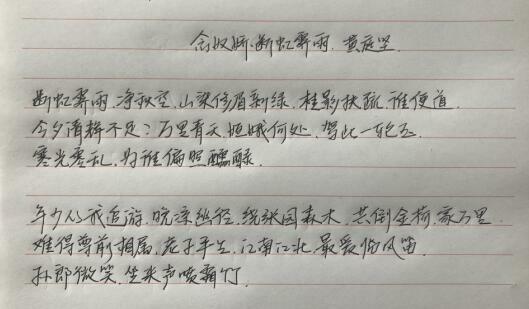 念奴娇·断虹霁雨 黄庭坚
断虹霁雨,净秋空,山染修眉新绿,桂影扶疏,谁便道
今夕清辉不足?万里青天,姮娥何处,驾此一轮玉
寒光零乱,为谁偏照醽醁
年少从我追游,晚凉幽径,绕张园森木,共倒金荷,家万里
难得尊前相属,老子平生,江南江北,最爱临风笛
孙郎微笑,坐来声喷霜竹